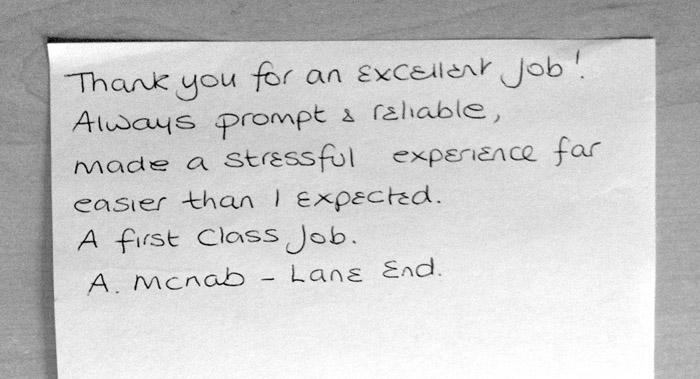 Thank you for an excellent job!
Always prompt & reliable,
made a stressful experience far
easier than I expected.
A first Class Job.
A. Mcnab - Lane End.